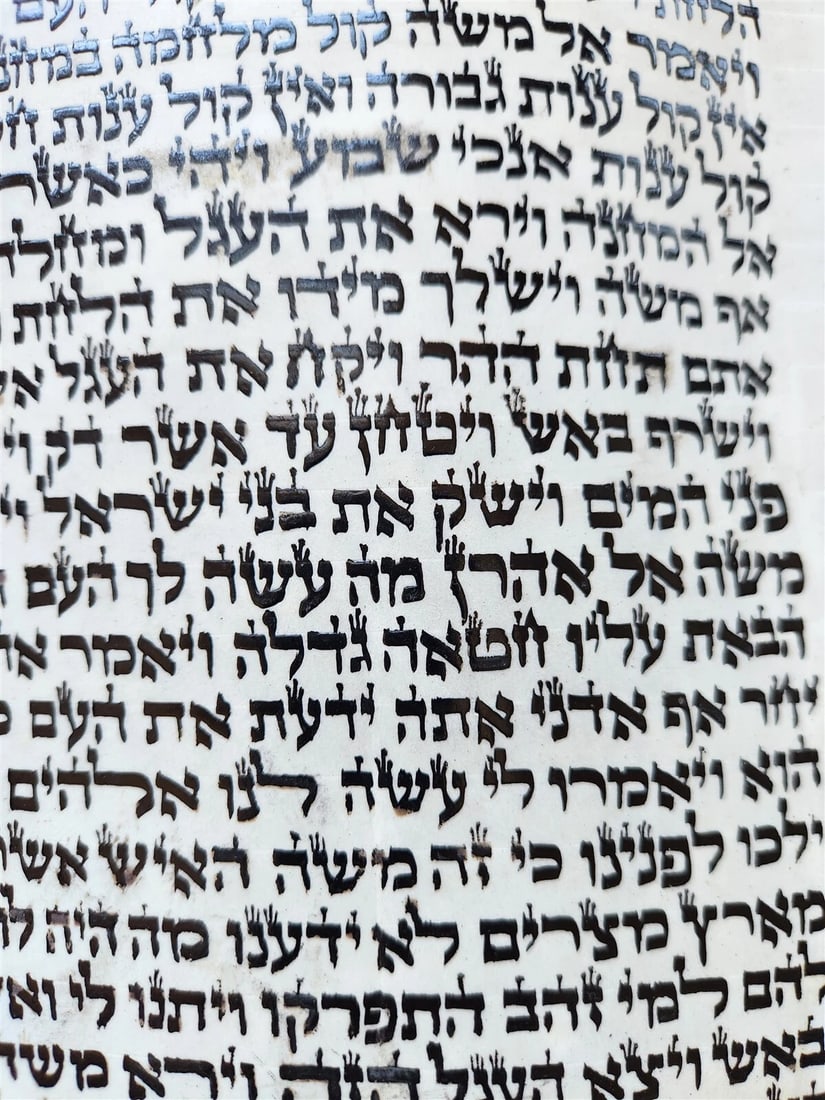 ויאמר אל משה קול מלחמה
אין קול ענות גבורה ואין קול ענות
קול ענות אנכי שמע ויהי כאשר
אל המחנה וירא את העגל
אף משה וישלך מידו את הלחת
אתם תחת ההר ויקח את העגל
וישרף באש ויטחן עד אשר דק
פני המים וישק את בני ישראל
משה אל אהרן מה עשה לך העם
הבאת עליו חטאה גדלה ויאמר
יחר אף אדני אתה ידעת את העם
הוא ויאמרו לי עשה לנו אלהים
ילכו לפנינו כי זה משה האיש
מארץ מצרים לא ידענו מה היה
להם למי זהב התפרקו ויתנו לי
באש ויצא העגל הזה וירא משה